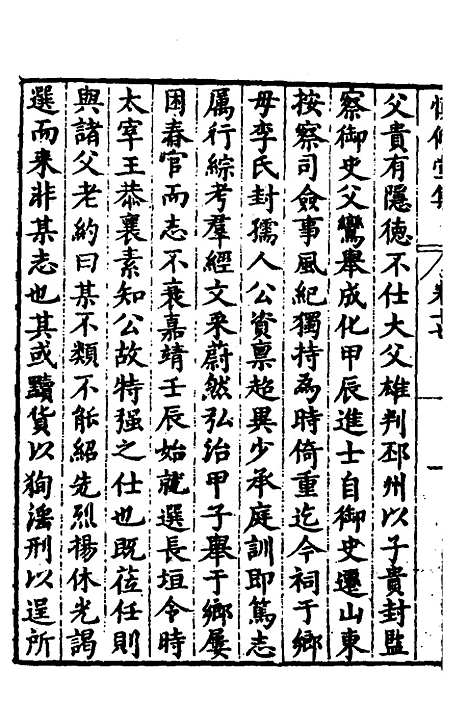 父貴有隱徳不仕大父雄判邳州以子貴封監
察御史父鸞舉成化甲辰進士自御史遷山東
按察司僉事風紀獨持為時倚重迄今祠于鄉
母李氏封孺人公資禀超異少承庭訓即篤志
厲行綜考羣經文采蔚然弘治甲子舉于鄉屢
困春官而志不衰嘉靖壬辰始就選長垣令時
太宰王恭襄素知公故特强之仕也既莅任則
與諸父老約曰某不類不能紹先烈揚休光謁
選而来非某志也其或黷貨以狥滛刑以逞所